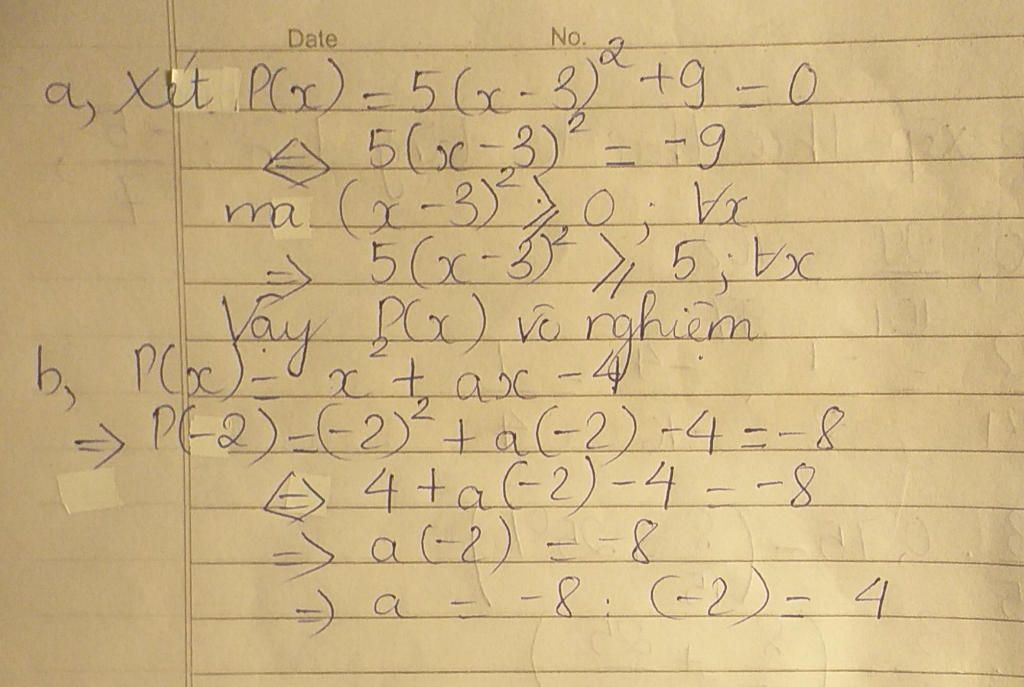 Date No.
a, Xét P(x) = 5(x - 3)² + 9 = 0
⇔ 5(x - 3)² = -9
mà (x - 3)² ⩾ 0 ; ∀x
⇒ 5(x - 3)² ⩾ 5 ; ∀x
Vậy P(x) vô nghiệm
b, P(x) = x² + ax - 4
⇒ P(-2) = (-2)² + a(-2) - 4 = -8
⇔ 4 + a(-2) - 4 = -8
⇒ a(-2) = -8
⇒ a = -8 : (-2) = 4